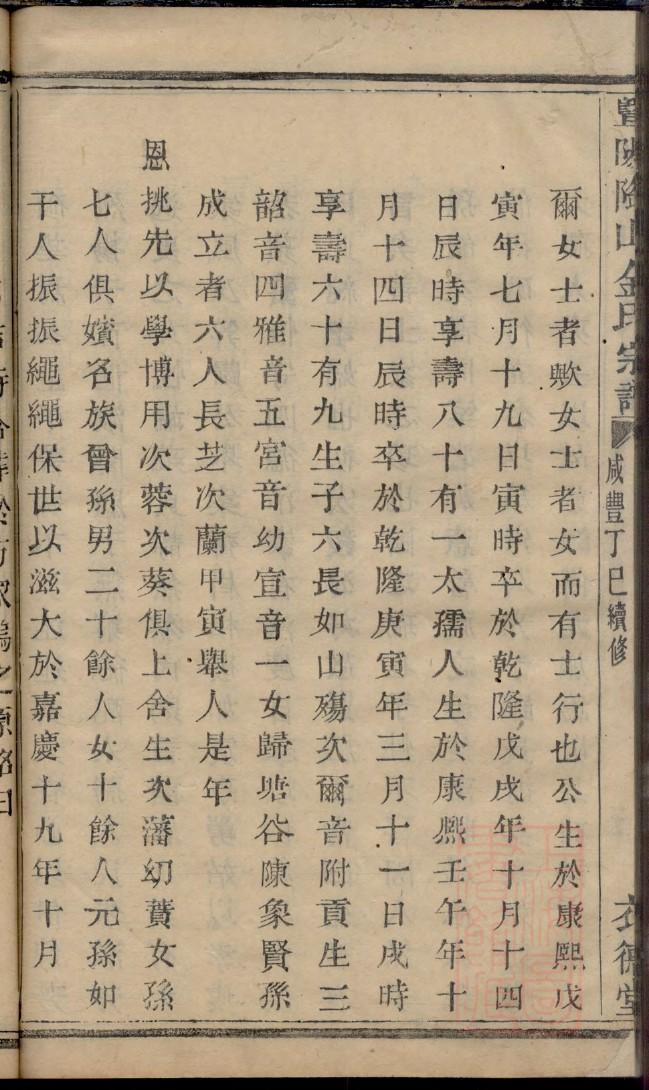 暨陽陶山金氏宗譜 咸豐丁巳續修 衣德堂
爾女士者歟女士者女而有士行也公生於康熙戊
寅年七月十九日寅時卒於乾隆戊戌年十月十四
日辰時享壽八十有一太孺人生於康熙壬午年十
月十四日辰時卒於乾隆庚寅年三月十一日戌時
享壽六十有九生子六長如山殤次爾音附貢生三
韶音四雅音五宮音幼宣音一女歸塘谷陳象賢孫
成立者六人長芝次蘭甲寅舉人是年
恩挑先以學博用次蓉次葵俱上舍生次藩幼蕡女孫
七人俱嬪名族曾孫男二十餘人女十餘人元孫如
干人振振繩繩保世以滋大於嘉慶十九年十月